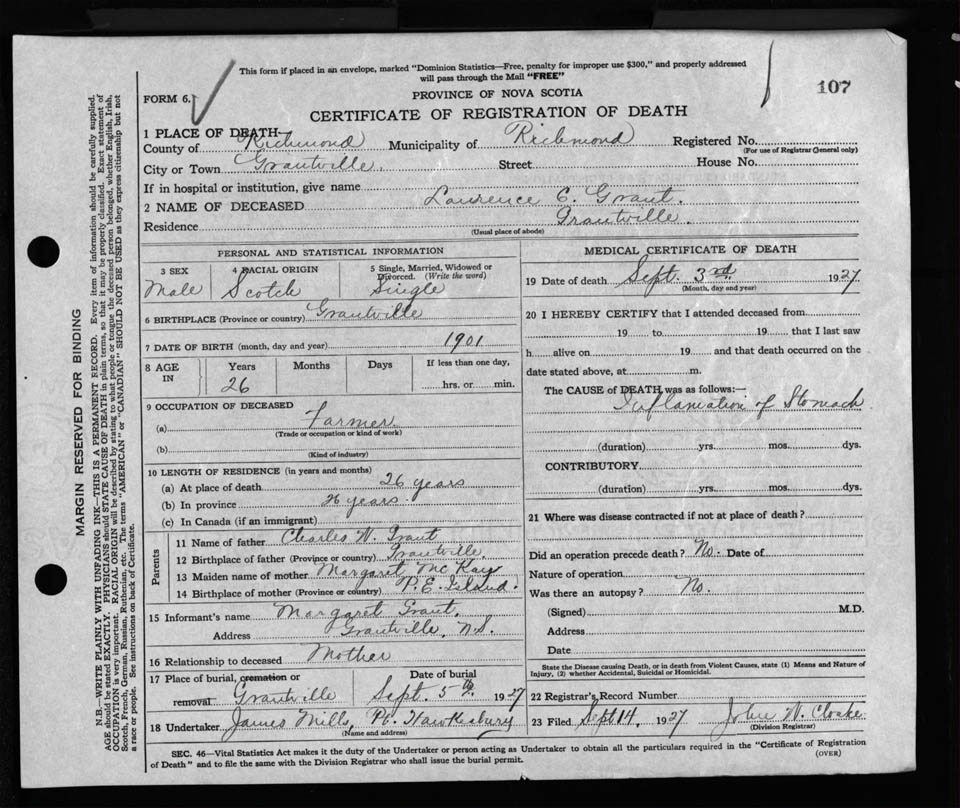 This form if placed in an envelope, marked "Dominion Statistics—Free, penalty for improper use $300," and properly addressed
will pass through the Mail "FREE"
107
PROVINCE OF NOVA SCOTIA
FORM 6.
CERTIFICATE OF REGISTRATION OF DEATH
1 PLACE OF DEATH—
County of Richmond Municipality of Richmond Registered No.
(For use of Registrar General only)
City or Town Grantville Street House No.
If in hospital or institution, give name
2 NAME OF DECEASED Laurence C. Grant.
Residence Grantville.
(Usual place of abode)
PERSONAL AND STATISTICAL INFORMATION
3 SEX 4 RACIAL ORIGIN 5 Single, Married, Widowed or
Divorced. (Write the word)
Male Scotch Single
6 BIRTHPLACE (Province or country) Grantville
7 DATE OF BIRTH (month, day and year) 1901
8 AGE IN Years Months Days If less than one day,
26 hrs. or min.
9 OCCUPATION OF DECEASED
(a) Farmer
(Trade or occupation or kind of work)
(b)
(Kind of industry)
10 LENGTH OF RESIDENCE (in years and months)
(a) At place of death 26 years
(b) In province 26 years.
(c) In Canada (if an immigrant)
Parents
11 Name of father Charles W. Grant
12 Birthplace of father (Province or country) Grantville.
13 Maiden name of mother Margaret McKay
14 Birthplace of mother (Province or Country) P.E. Island.
15 Informant's name Margaret Grant,
Address Grantville, N.S.
16 Relationship to deceased Mother
17 Place of burial, cremation or Date of burial
removal Grantville Sept. 5th. 1927
18 Undertaker James Mills, Pt. Hawkesbury
(Name and address)
MEDICAL CERTIFICATE OF DEATH
19 Date of death Sept. 3rd 1927
(Month, day and year)
20 I HEREBY CERTIFY that I attended deceased from
19 to 19 that I last saw
h alive on 19 and that death occurred on the
date stated above, at m.
The CAUSE of DEATH was as follows:—
Inflamation of Stomach
(duration) yrs. mos. dys.
CONTRIBUTORY
(duration) yrs. mos. dys.
21 Where was disease contracted if not at place of death?
Did an operation precede death? No. Date of
Nature of operation
Was there an autopsy? No.
(Signed) M.D.
Address
Date
State the Disease causing Death, or in death from Violent Causes, state (1) Means and Nature of
Injury, (2) whether Accidental, Suicidal or Homicidal.
22 Registrar's Record Number
23 Filed Sept 14, 1927 John W. Cloake
(Division Registrar)
SEC. 46—Vital Statistics Act makes it the duty of the Undertaker or person acting as Undertaker to obtain all the particulars required in the "Certificate of Registration
of Death" and to file the same with the Division Registrar who shall issue the burial permit.
(OVER)
MARGIN RESERVED FOR BINDING
N.B.—WRITE PLAINLY WITH UNFADING INK—THIS IS A PERMANENT RECORD. Every item of information should be carefully supplied.
AGE should be stated EXACTLY. PHYSICIANS should STATE CAUSE OF DEATH in plain terms, so that it may be properly classified. Exact statement of
OCCUPATION is very important. RACIAL ORIGIN will be described by stating to what people or tongue the deceased person belonged, whether English, Irish,
Scotch, French, German, Russian, Ruthenian, etc. The terms "AMERICAN" or "CANADIAN" SHOULD NOT BE USED as they express citizenship but not
a race or people. See instructions on back of Certificate.